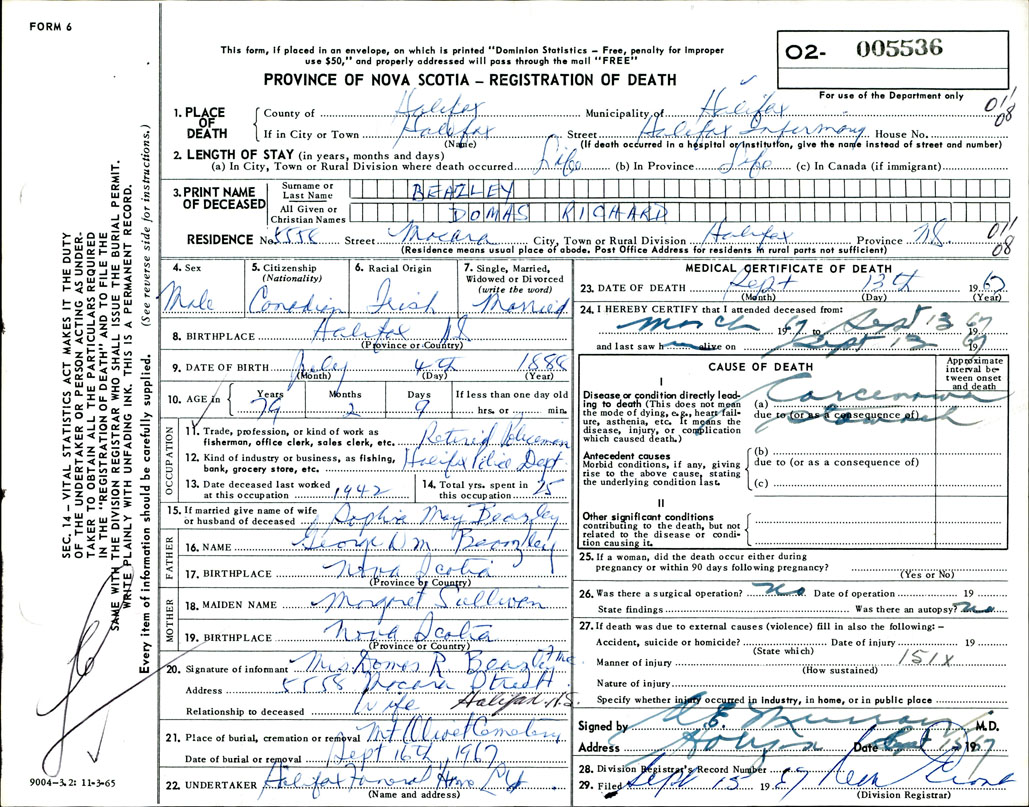 FORM 6
This form, if placed in an envelope, on which is printed "Dominion Statistics – Free, penalty for improper
use $50," and properly addressed will pass through the mail "FREE"
PROVINCE OF NOVA SCOTIA – REGISTRATION OF DEATH
O2- 005536
For use of the Department only
011/08
1. PLACE OF DEATH County of Halifax Municipality of Halifax
If in City or Town Halifax Street Halifax Infirmary House No.
(Name) (If death occurred in a hospital or institution, give the name instead of street and number)
2. LENGTH OF STAY (in years, months and days)
(a) In City, Town or Rural Division where death occurred Life (b) In Province Life (c) In Canada (if immigrant)
3. PRINT NAME OF DECEASED Surname or Last Name BEAZLEY
All Given or Christian Names DOMAS RICHARD
RESIDENCE No. 5558 Street Macara City, Town or Rural Division Halifax Province NS 011/08
(Residence means usual place of abode. Post Office Address for residents in rural parts not sufficient)
4. Sex Male
5. Citizenship (Nationality) Canadian
6. Racial Origin Irish
7. Single, Married, Widowed or Divorced (write the word) Married
8. BIRTHPLACE Halifax NS
(Province or Country)
9. DATE OF BIRTH July 4th 1888
(Month) (Day) (Year)
10. AGE in Years 79 Months 2 Days 9 If less than one day old hrs. or min.
OCCUPATION
11. Trade, profession, or kind of work as fisherman, office clerk, sales clerk, etc. Retired Policeman
12. Kind of industry or business, as fishing, bank, grocery store, etc. Halifax Police Dept.
13. Date deceased last worked at this occupation 1942 14. Total yrs. spent in this occupation 25
15. If married give name of wife or husband of deceased Sophia May Beazley
FATHER
16. NAME George D M Beazley
17. BIRTHPLACE Nova Scotia
(Province or Country)
MOTHER
18. MAIDEN NAME Margaret Sullivan
19. BIRTHPLACE Nova Scotia
(Province or Country)
20. Signature of informant Mrs Domas R Beazley
Address 5558 Macara Street
Halifax N.S.
Relationship to deceased Wife
21. Place of burial, cremation or removal Mt Olivet Cemetery
Date of burial or removal Sept 16th 1967
22. UNDERTAKER Halifax Funeral Home Ltd
(Name and address)
MEDICAL CERTIFICATE OF DEATH
23. DATE OF DEATH Sept 13th 1967
(Month) (Day) (Year)
24. I HEREBY CERTIFY that I attended deceased from:
March 1967 to Sept 13 1967
and last saw him alive on Sept 13 1967
CAUSE OF DEATH
Approximate interval between onset and death
I
Disease or condition directly leading to death (This does not mean the mode of dying, e.g., heart failure, asthenia, etc. It means the disease, injury, or complication which caused death.)
(a) Carcinoma
due to (or as a consequence of) stomach
Antecedent causes
Morbid conditions, if any, giving rise to the above cause, stating the underlying condition last.
(b)
due to (or as a consequence of)
(c)
II
Other significant conditions contributing to the death, but not related to the disease or condition causing it.
25. If a woman, did the death occur either during pregnancy or within 90 days following pregnancy?
(Yes or No)
26. Was there a surgical operation? No Date of operation 19
State findings Was there an autopsy? No
27. If death was due to external causes (violence) fill in also the following: –
Accident, suicide or homicide? Date of injury 19
(State which)
Manner of injury 151X
(How sustained)
Nature of injury
Specify whether injury occurred in industry, in home, or in public place
Signed by Murray M.D.
Address Date Sept 15 1967
28. Division Registrar's Record Number
29. Filed Sept 15 1967
(Division Registrar)
SEC. 14 – VITAL STATISTICS ACT MAKES IT THE DUTY
OF THE UNDERTAKER OR PERSON ACTING AS UNDER-
TAKER TO OBTAIN ALL THE PARTICULARS REQUIRED
IN THE "REGISTRATION OF DEATH" AND TO FILE THE
SAME WITH THE DIVISION REGISTRAR WHO SHALL ISSUE THE BURIAL PERMIT.
WRITE PLAINLY WITH UNFADING INK. THIS IS A PERMANENT RECORD.
Every item of information should be carefully supplied. (See reverse side for instructions.)
9004-3.2: 11-3-65